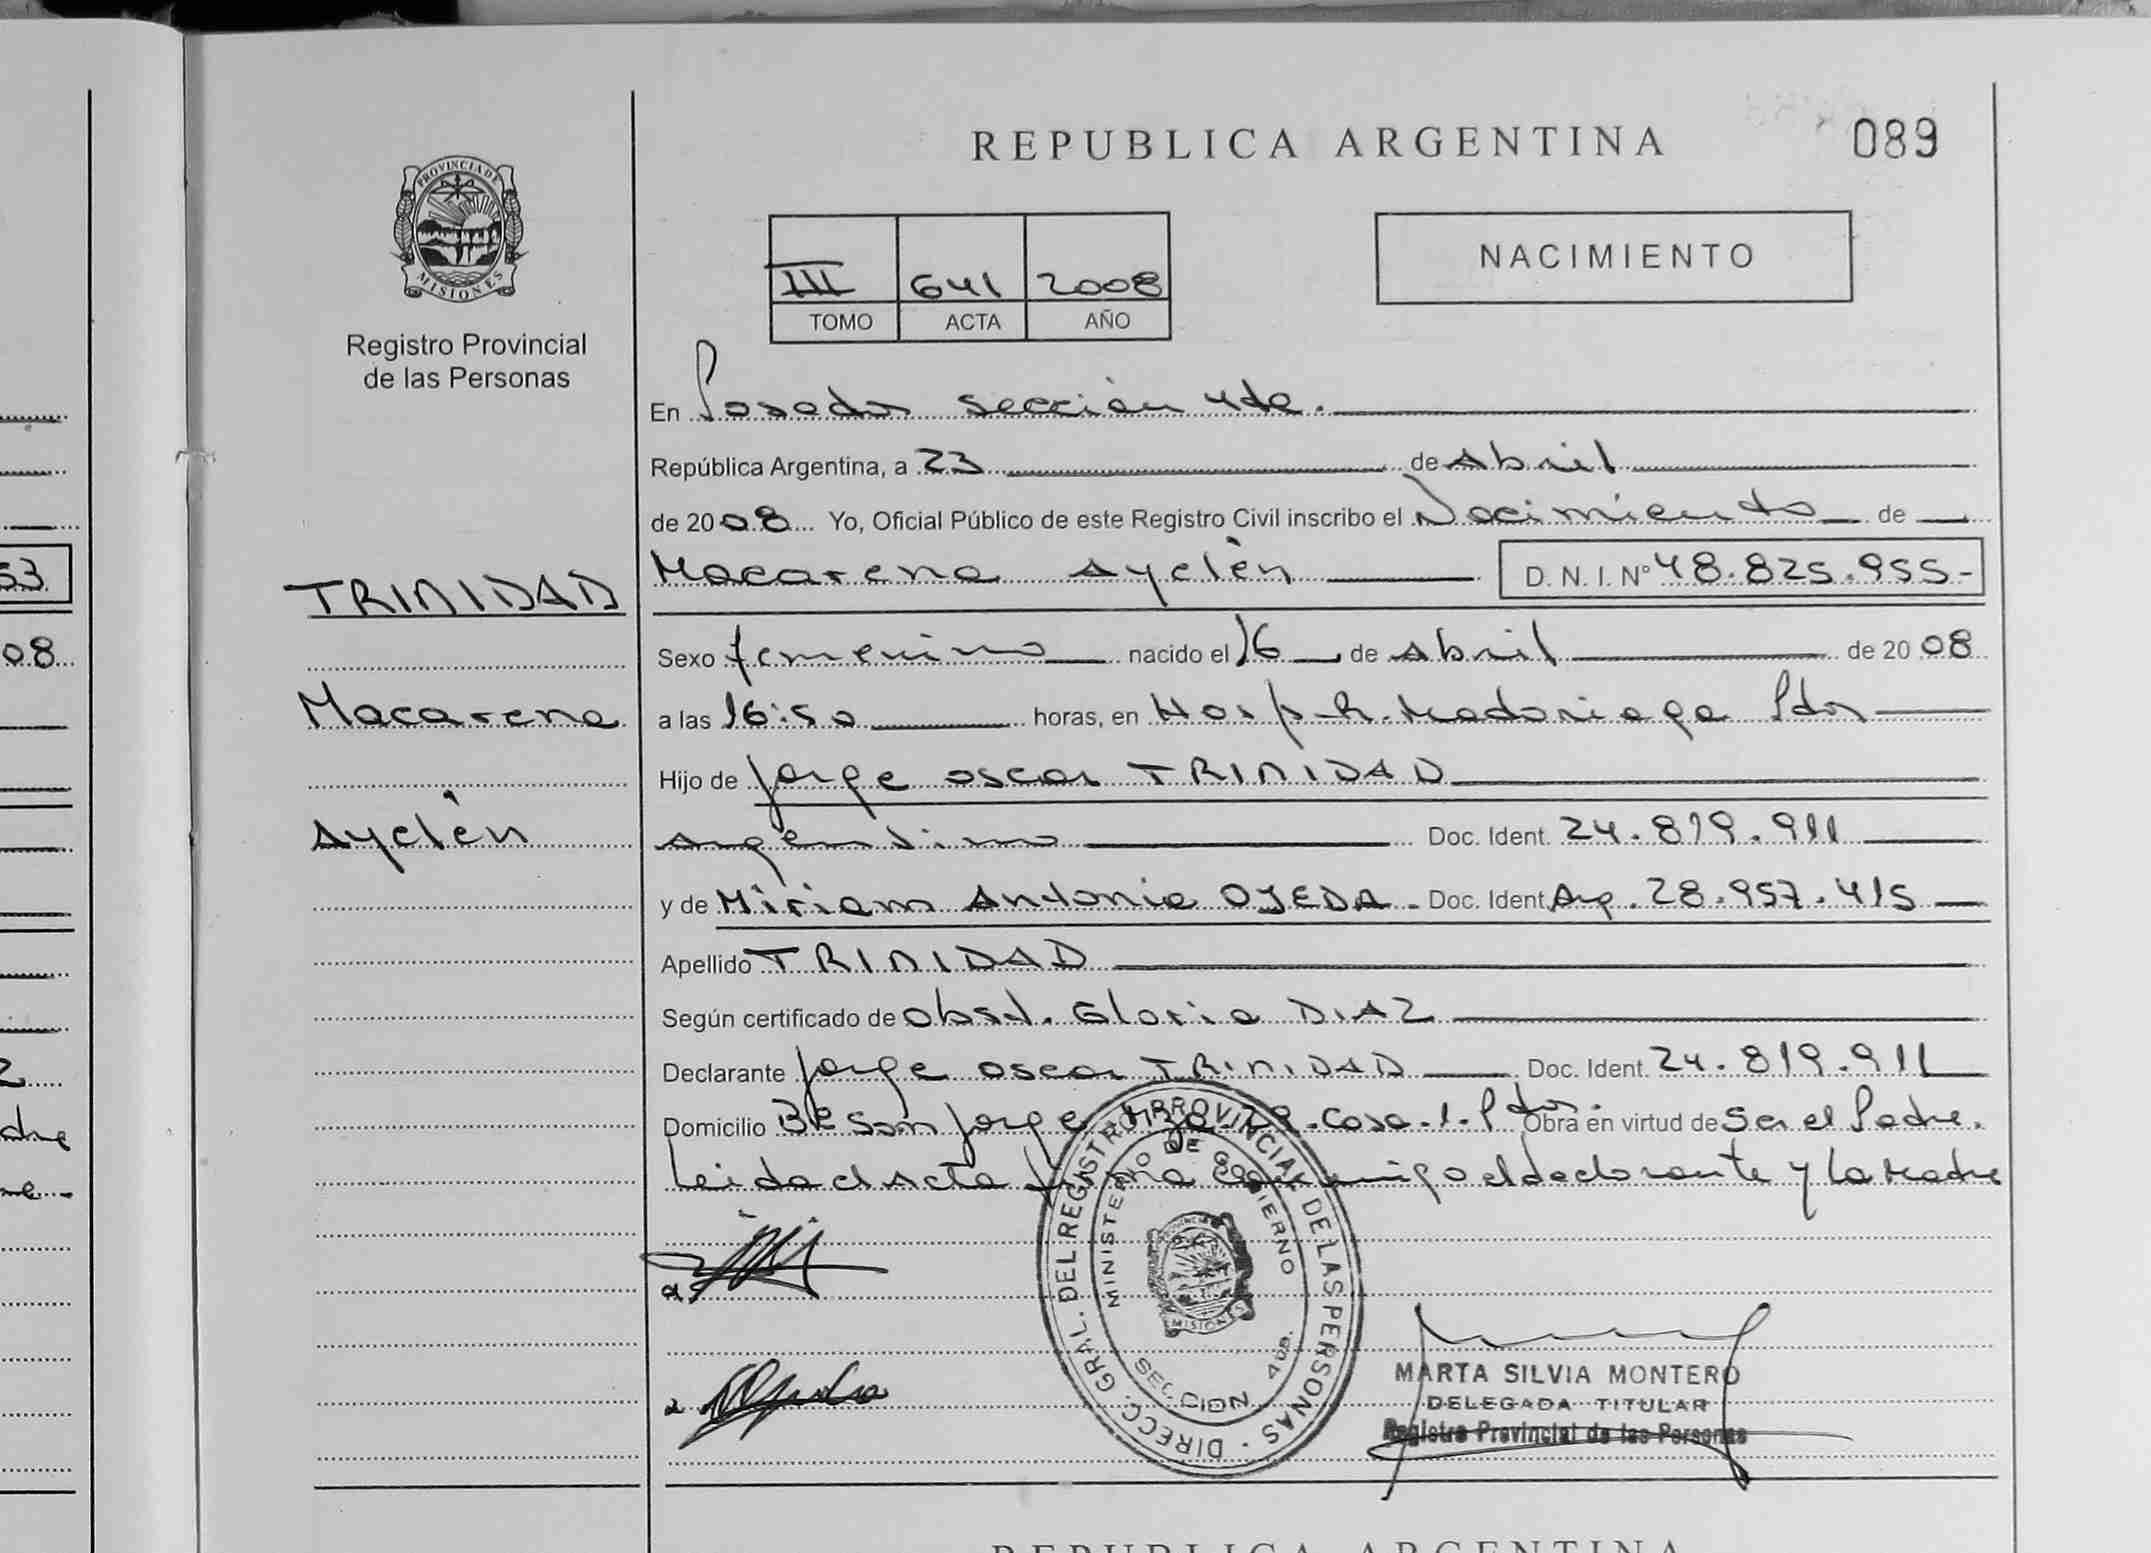 REPUBLICA ARGENTINA
089
PROVINCIA DE
MISIONES
Registro Provincial
de las Personas
III 641 2008
TOMO ACTA AÑO
NACIMIENTO
En Posadas sección 4ta.
República Argentina, a 23 de Abril
de 2008 Yo, Oficial Público de este Registro Civil inscribo el Nacimiento de
53
TRINIDAD
Macarena Ayelén D. N. I. Nº 48.825.955-
08
Sexo femenino nacido el 16 de Abril de 2008
Macarena
a las 16:50 horas, en Hosp. R. Madariaga Pdas
Hijo de Jorge Oscar TRINIDAD
Ayelén
Argentino Doc. Ident. 24.819.911
y de Miriam Antonia OJEDA - Doc. Ident. Arg. 28.957.415
Apellido TRINIDAD
Según certificado de Obst. Gloria DIAZ
Declarante Jorge Oscar TRINIDAD Doc. Ident. 24.819.911
Domicilio Bº San Jorge Casa.1-Pdas. Obra en virtud de Ser el Padre.
Leida el Acta firma conmigo el declarante y la Madre
DIRECC. GRAL. DEL REGISTRO PROVINCIAL DE LAS PERSONAS
MINISTERIO DE GOBIERNO
MISIONES
SECCION 4ta.
MARTA SILVIA MONTERO
DELEGADA TITULAR
Registro Provincial de las Personas
REPUBLICA ARGENTINA